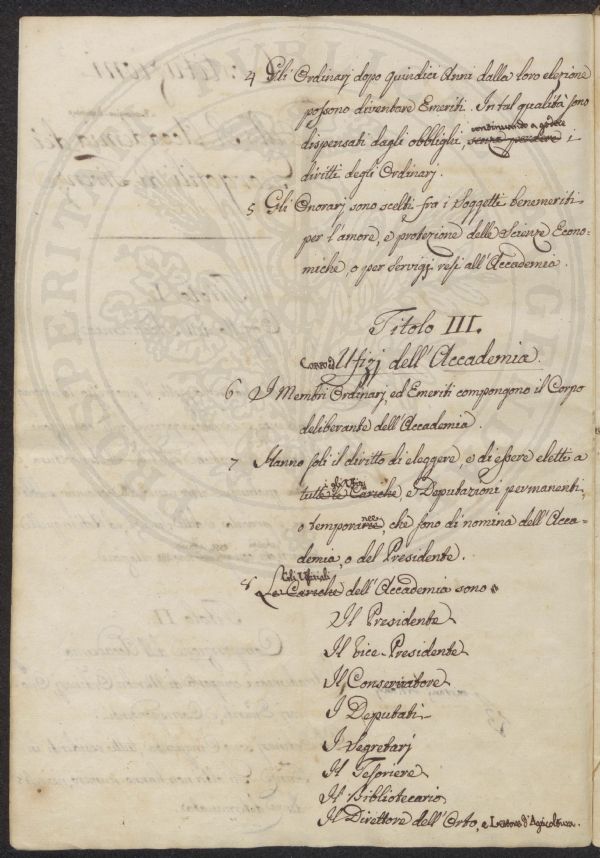 4 Gli Ordinarj dopo quindici Anni dalla loro elezione
possono diventare Emeriti. In tal qualità sono
continuando a godere
dispensati dagli obblighi, senza perdere i
diritti degli Ordinarj.
5 Gli Onorarj sono scelti fra i Soggetti benemeriti
per l'amore, e protezione delle Scienze Econo-
miche, o per servigj resi all'Accademia.
Titolo III.
Ufizj dell'Accademia.
6 I Membri Ordinarj, ed Emeriti compongono il Corpo
deliberante dell'Accademia.
7 Hanno soli il diritto di eleggere, e di essere eletti a
gli Ufizj
tutte le Cariche, e Deputazioni permanenti,
o temporarie, che sono di nomina dell'Acca-
demia, o del Presidente.
Gli Ufiziali
8 Le Cariche dell'Accademia sono
Il Presidente
Il Vice-Presidente
Il Conservatore
I Deputati
I Segretarj
Il Tesoriere
Il Bibliotecario
Il Direttore dell'Orto, e Lettore d'Agricoltura.